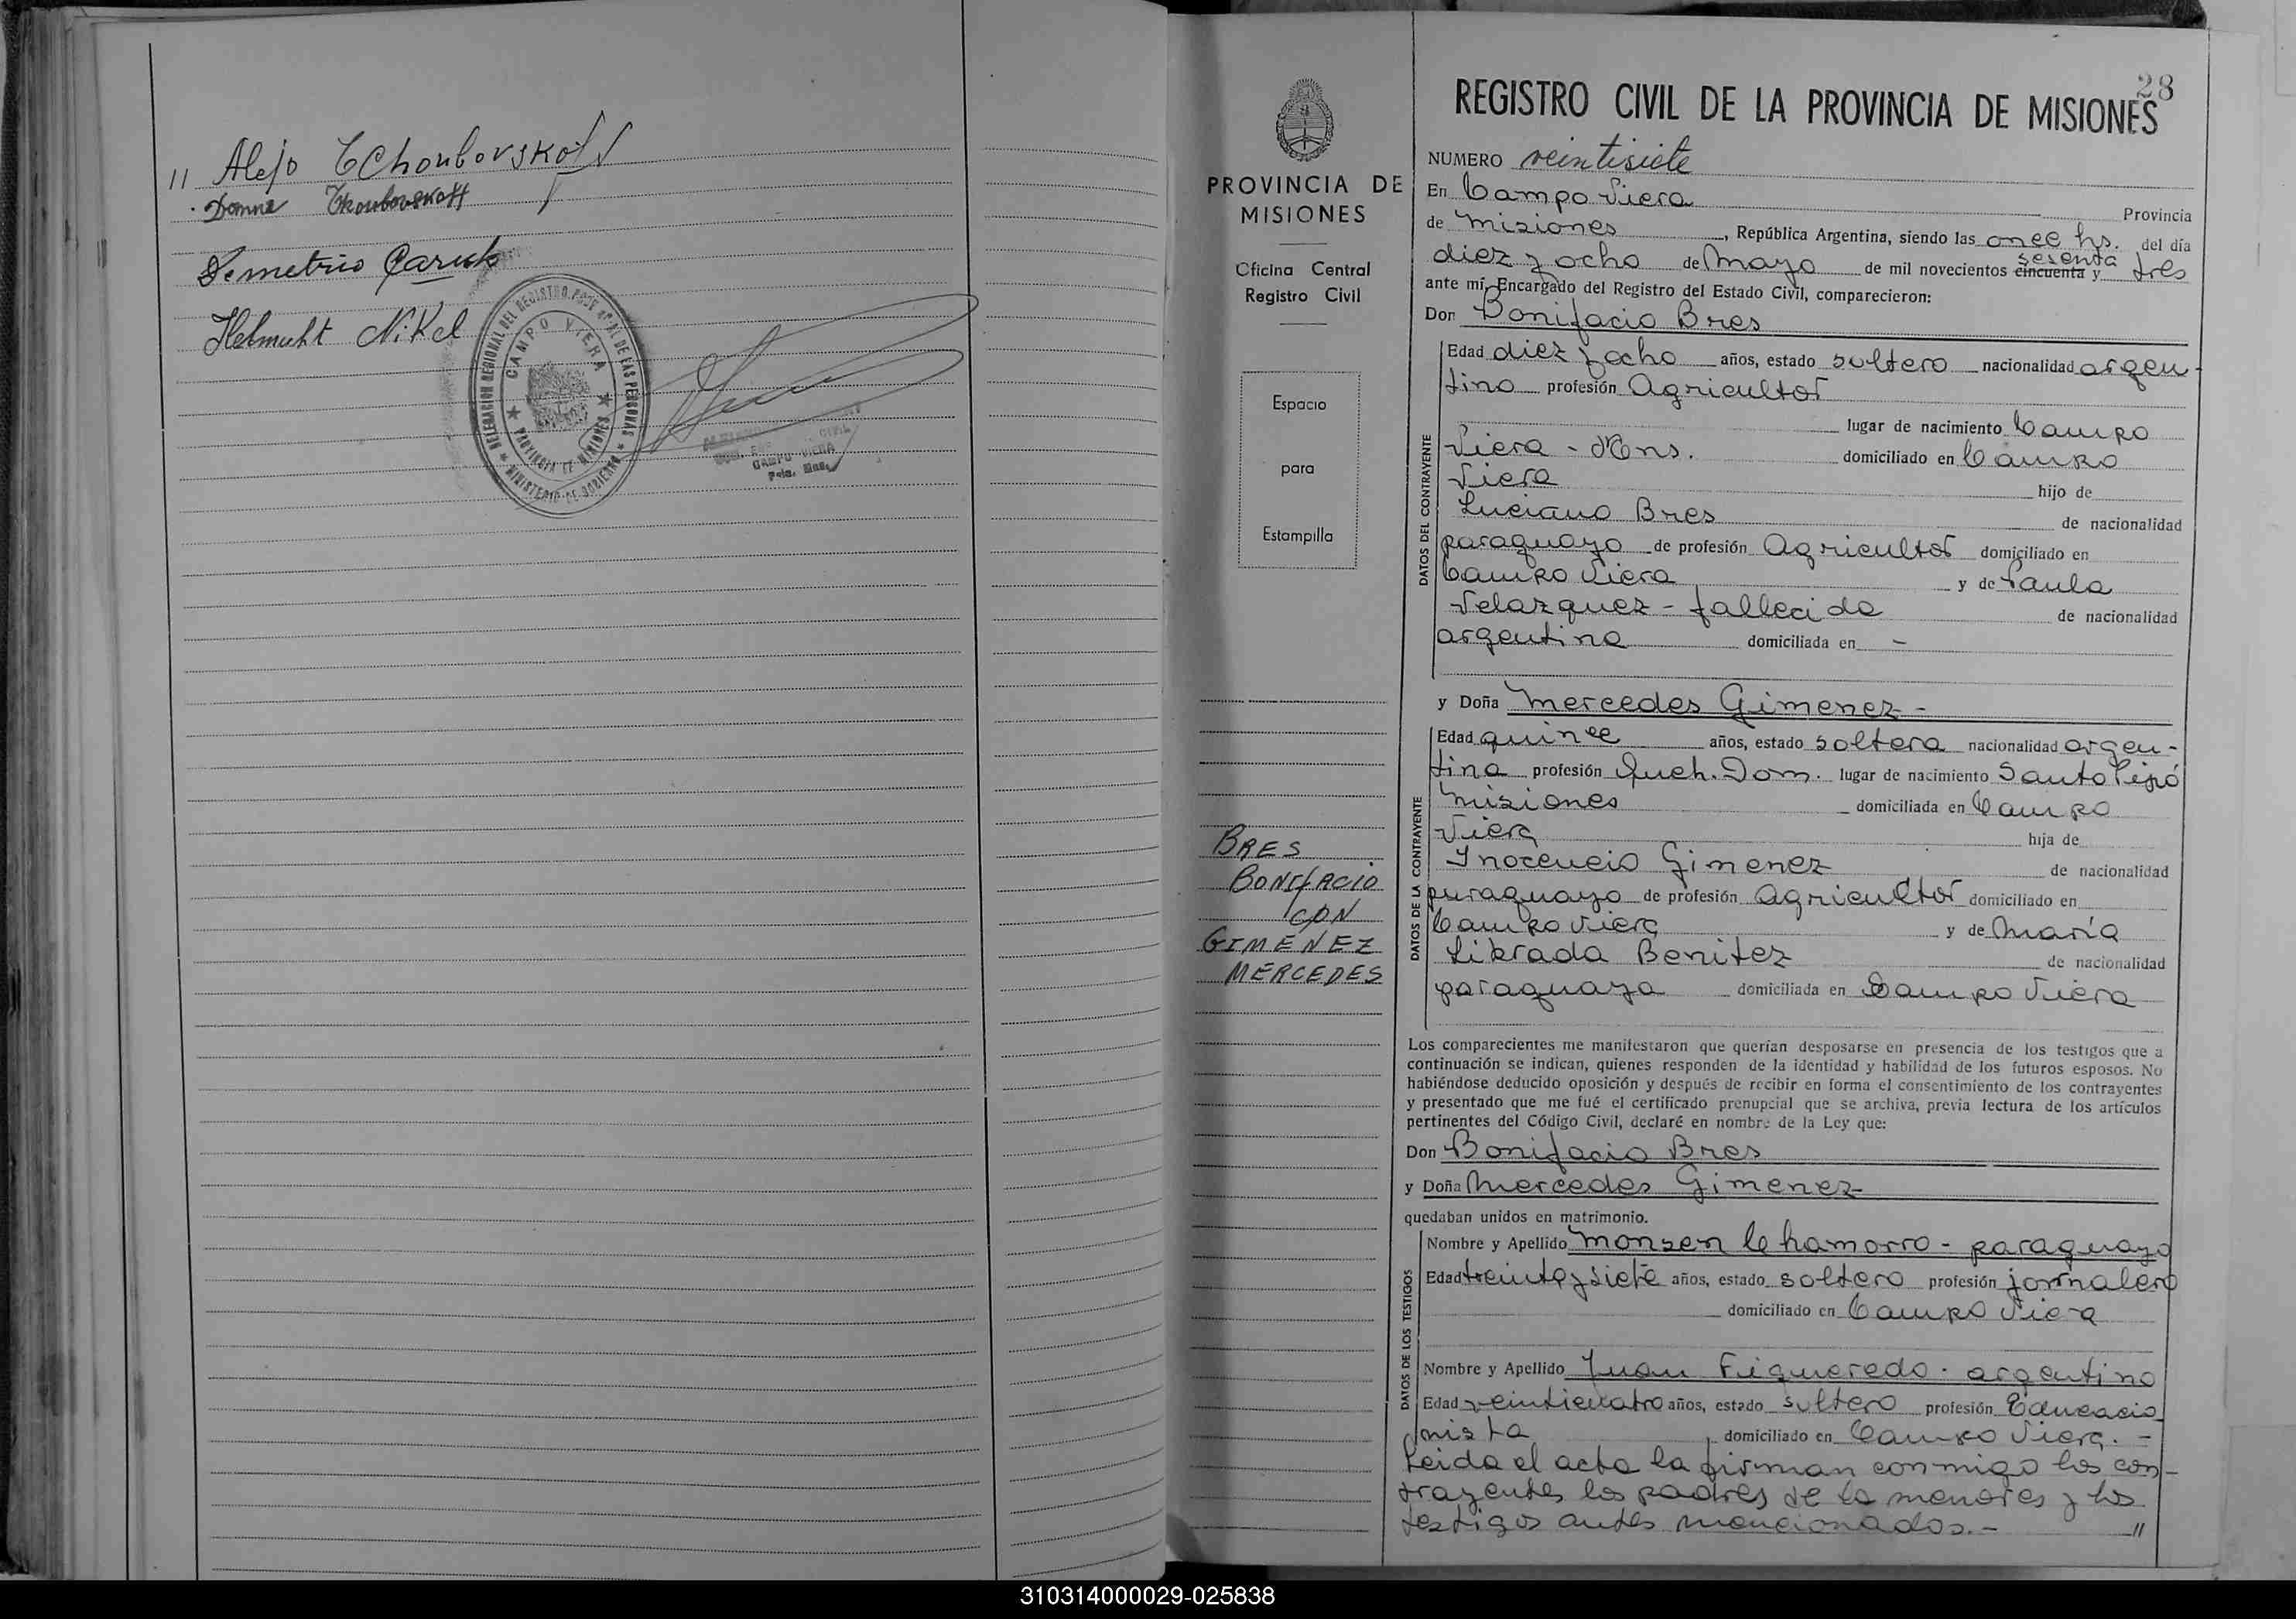 11 Alejo Tchoubovskoff
Domne Tkoubovskoff
Demetrio
Helmuht Nikel
DELEGACION REGIONAL DEL REGISTRO DE LAS PERSONAS
CAMPO VIERA
PROVINCIA DE MISIONES
MINISTERIO DE GOBIERNO
CIVIL
CAMPO VIERA
PROVINCIA DE
MISIONES
Oficina Central
Registro Civil
Espacio
para
Estampilla
BRES
BONIFACIO
CON
GIMENEZ
MERCEDES
28
REGISTRO CIVIL DE LA PROVINCIA DE MISIONES
NUMERO veintisiete
En Campo Viera Provincia
de Misiones, República Argentina, siendo las once hs. del día
diez y ocho de Mayo de mil novecientos cincuenta sesenta y tres
ante mí, Encargado del Registro del Estado Civil, comparecieron:
Don Bonifacio Bres
DATOS DEL CONTRAYENTE
Edad diez y ocho años, estado soltero nacionalidad argen-
tino profesión Agricultor
lugar de nacimiento Campo
Viera - Mns. domiciliado en Campo
Viera hijo de
Luciano Bres de nacionalidad
paraguayo de profesión Agricultor domiciliado en
Campo Viera y de Paula
Velazquez - fallecida de nacionalidad
argentina domiciliada en -
y Doña Mercedes Gimenez -
DATOS DE LA CONTRAYENTE
Edad quince años, estado soltera nacionalidad argen-
tina profesión Queh. Dom. lugar de nacimiento Santo Pipó
Misiones domiciliada en Campo
Viera hija de
Inocencio Gimenez de nacionalidad
paraguayo de profesión Agricultor domiciliado en
Campo Viera y de María
Librada Benitez de nacionalidad
paraguaya domiciliada en Campo Viera
Los comparecientes me manifestaron que querían desposarse en presencia de los testigos que a
continuación se indican, quienes responden de la identidad y habilidad de los futuros esposos. No
habiéndose deducido oposición y después de recibir en forma el consentimiento de los contrayentes
y presentado que me fué el certificado prenupcial que se archiva, previa lectura de los artículos
pertinentes del Código Civil, declaré en nombre de la Ley que:
Don Bonifacio Bres
y Doña Mercedes Gimenez
quedaban unidos en matrimonio.
DATOS DE LOS TESTIGOS
Nombre y Apellido Monsen Chamorro - paraguayo
Edad treinta y siete años, estado soltero profesión jornalero
domiciliado en Campo Viera
Nombre y Apellido Juan Figueredo - argentino
Edad veinticuatro años, estado soltero profesión Educacio
nista domiciliado en Campo Viera. -
Leida el acta la firman conmigo los con-
trayentes los padres de la menores y los
testigos antes mencionados. - //
310314000029-025838